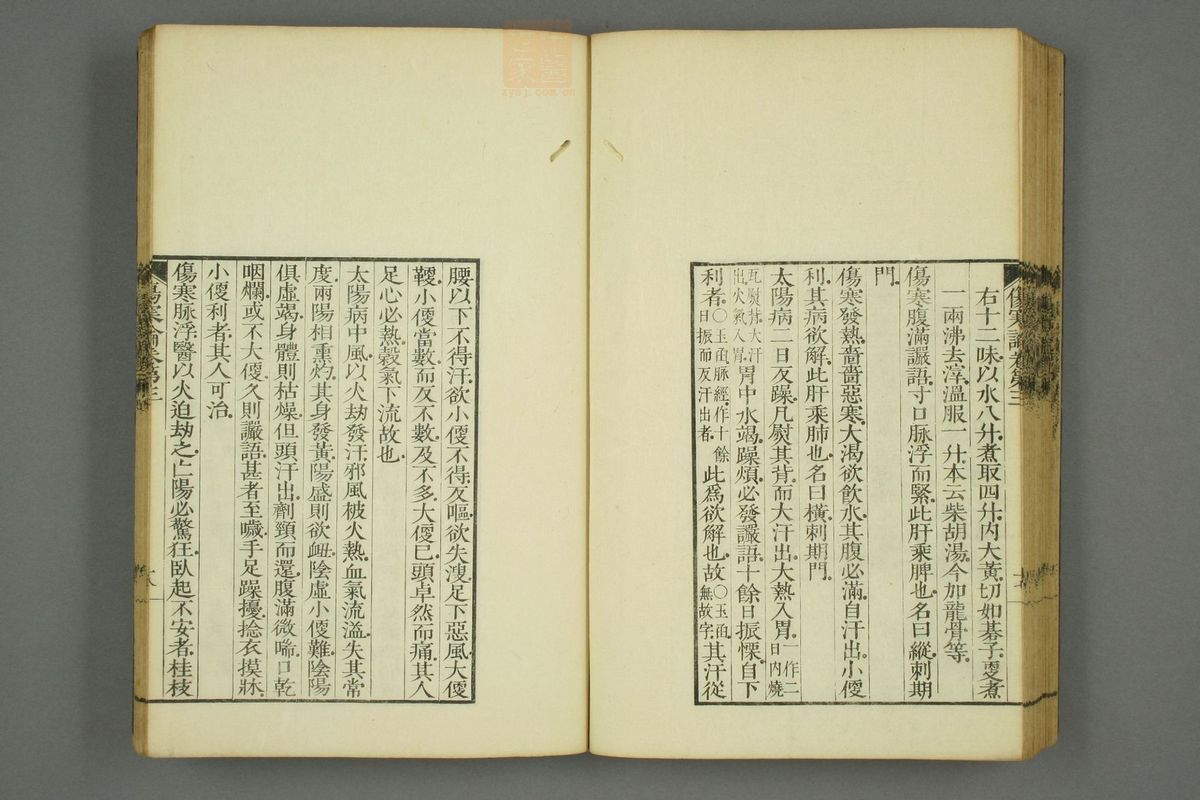 傷寒論卷第三
右十二味以水八升煮取四升内大黃切如碁子更煮
一兩沸去滓溫服一升本云柴胡湯今加龍骨等
傷寒腹滿讝語寸口脉浮而緊此肝乘脾也名曰縱刺期
門
傷寒發熱嗇嗇惡寒大渴欲飲水其腹必滿自汗出小便
利其病欲解此肝乘肺也名曰橫刺期門
太陽病二日反躁凡熨其背而大汗出大熱入胃一作二日内燒
瓦熨背大汗出火氣入胃胃中水竭躁煩必發讝語十餘日振慄自下
利者○玉函脉經作十餘日振而反汗出者此為欲解也故○玉函無故字其汗從
腰以下不得汗欲小便不得反嘔欲失溲足下惡風大便
鞕小便當數而反不數及不多大便已頭卓然而痛其人
足心必熱穀氣下流故也
太陽病中風以火劫發汗邪風被火熱血氣流溢失其常
度兩陽相熏灼其身發黃陽盛則欲衄陰虛小便難陰陽
俱虛竭身體則枯燥但頭汗出劑頸而還腹滿微喘口乾
咽爛或不大便久則讝語甚者至噦手足躁擾捻衣摸牀
小便利者其人可治
傷寒脉浮醫以火迫劫之亡陽必驚狂臥起不安者桂枝
傷寒論卷第三